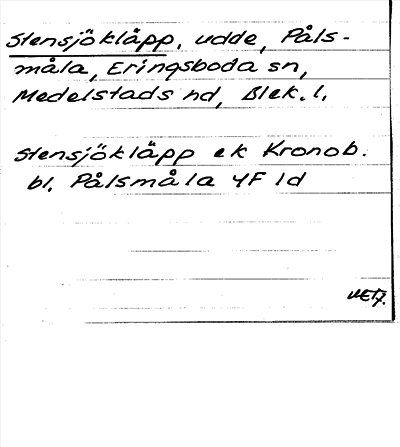 Stensjökläpp, udde, Påls-
måla, Eringsboda sn,
Medelstads hd, Blek. l.
Stensjökläpp ek Kronob.
bl. Pålsmåla 4F 1d